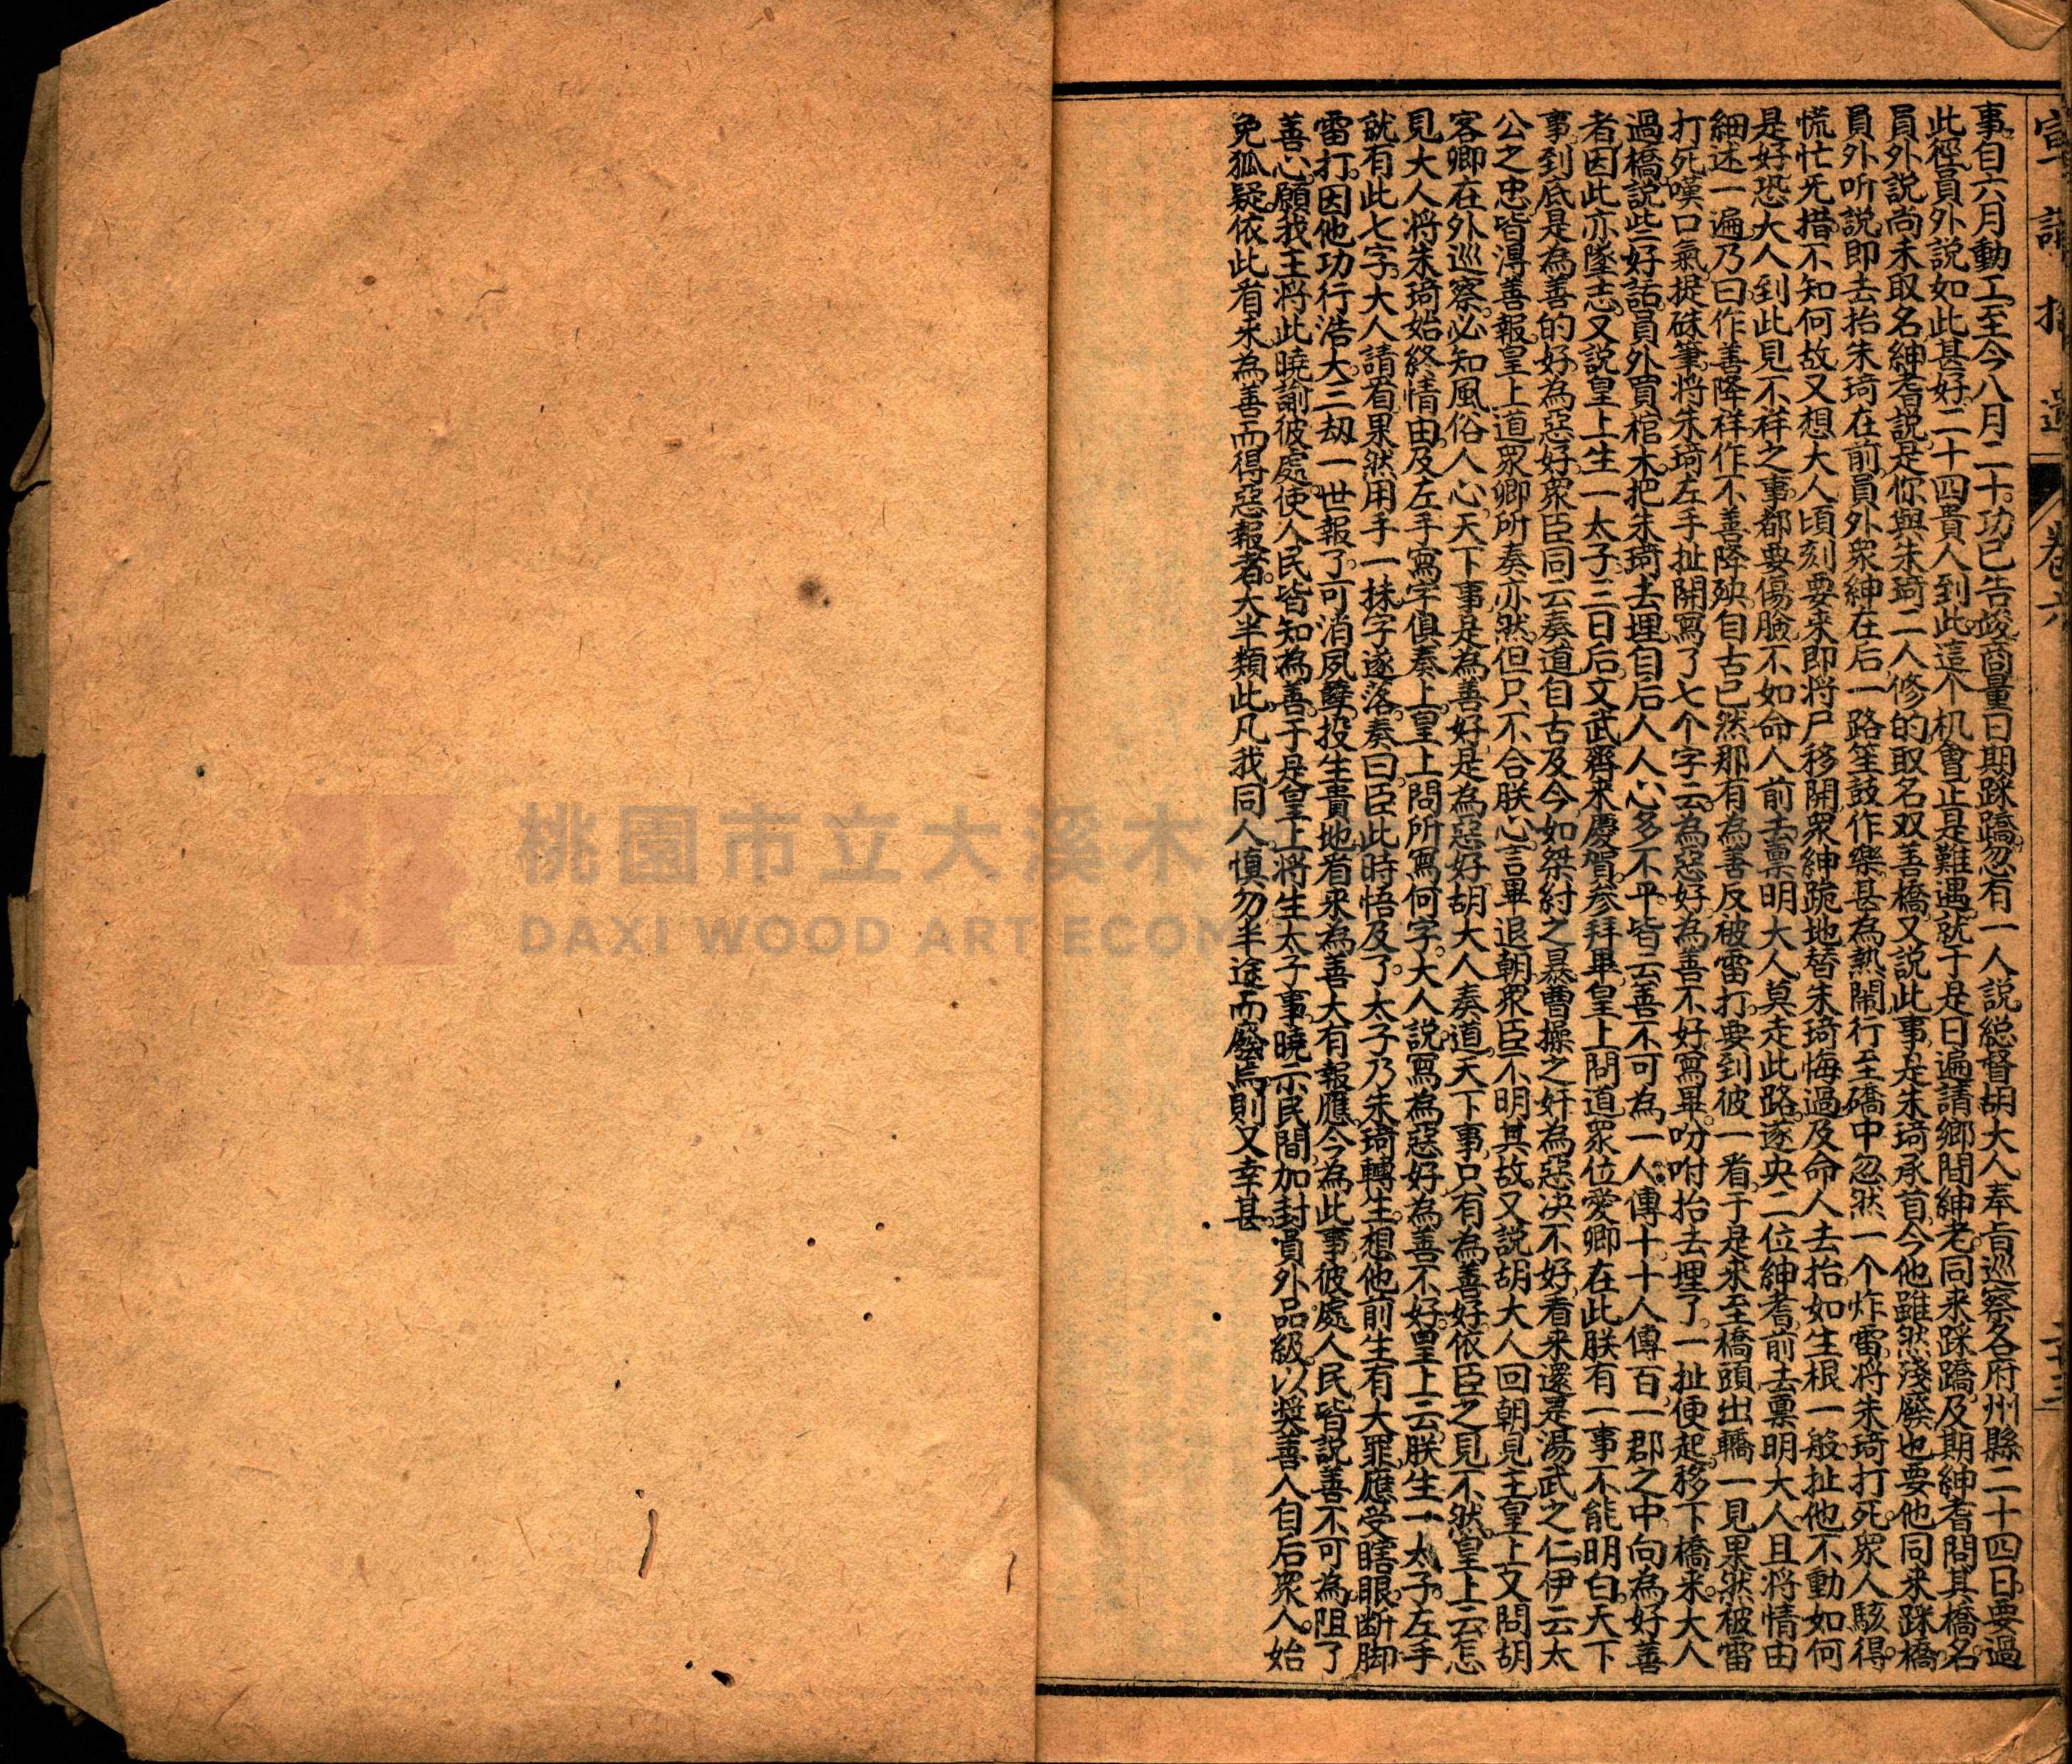 宣講拾遺 卷六
事自六月動工至今八月二十功已告竣商量日期踩蹻忽有一人説総督胡大人奉旨巡察各府州縣二十四日要過
此徑員外説如此甚好二十四貴人到此這个机會正是難遇就于是日遍請鄉間紳老同来踩蹻及期紳耆問其橋名
員外説尚未取名紳耆説是你與朱琦二人修的取名双善橋又説此事是朱琦承首今他雖然殘廢也要他同来踩橋
員外听説即去抬朱琦在前員外衆紳在后一路笙鼓作樂甚為熱鬧行至礄中忽然一个炸雷将朱琦打死衆人駭得
慌忙旡措不知何故又想大人頃刻要来即将尸移開衆紳跪地替朱琦悔過及命人去抬如生根一般扯他不動如何
是好恐大人到此見不祥之事都要傷臉不如命人前去禀明大人莫走此路遂央二位紳耆前去禀明大人且将情由
細述一遍乃曰作善降祥作不善降殃自古已然那有為善反被雷打要到彼一看于是来至橋頭出轎一見果然被雷
打死嘆口氣提硃筆将朱琦左手扯開寫了七个字云為惡好為善不好寫畢吩咐抬去埋了一扯便起移下橋来大人
過橋説些好話員外買棺木把朱琦去埋自后人人心多不平皆云善不可為一人傳十十人傳百一郡之中向為好善
者因此亦墜志又説皇上生一太子三日后文武齊来慶賀参拜畢皇上問道衆位愛卿在此朕有一事不能明白天下
事到底是為善的好為惡好衆臣同云奏道自古及今如桀紂之暴曹操之奸為惡决不好看来還是湯武之仁伊云太
公之忠皆淂善報皇上道衆卿所奏亦然但只不合朕心言畢退朝衆臣不明其故又説胡大人回朝見主皇上又問胡
客卿在外巡察必知風俗人心天下事是為善好是為惡好胡大人奏道天下事只有為善好依臣之見不然皇上云怎
見大人将朱琦始終情由及左手寫字俱奏上皇上問所寫何字大人説寫為惡好為善不好皇上云朕生一太子左手
就有此七字大人請看果然用手一抹字遂落奏曰臣此時悟及了太子乃朱琦轉生想他前生有大罪應受瞎眼断脚
雷打因他功行浩大三刼一世報了可消夙孽投生貴地看来為善大有報應今為此事彼處人民皆説善不可為阻了
善心願我王将此曉諭彼處使人民皆知為善于是皇上将生太子事曉示民間加封員外品級以奨善人自后衆人始
免狐疑依此看来為善而得惡報者大半類此凡我同人慎勿半途而廢焉則又幸甚
桃園市立大溪木
DAXI WOOD ART ECOM